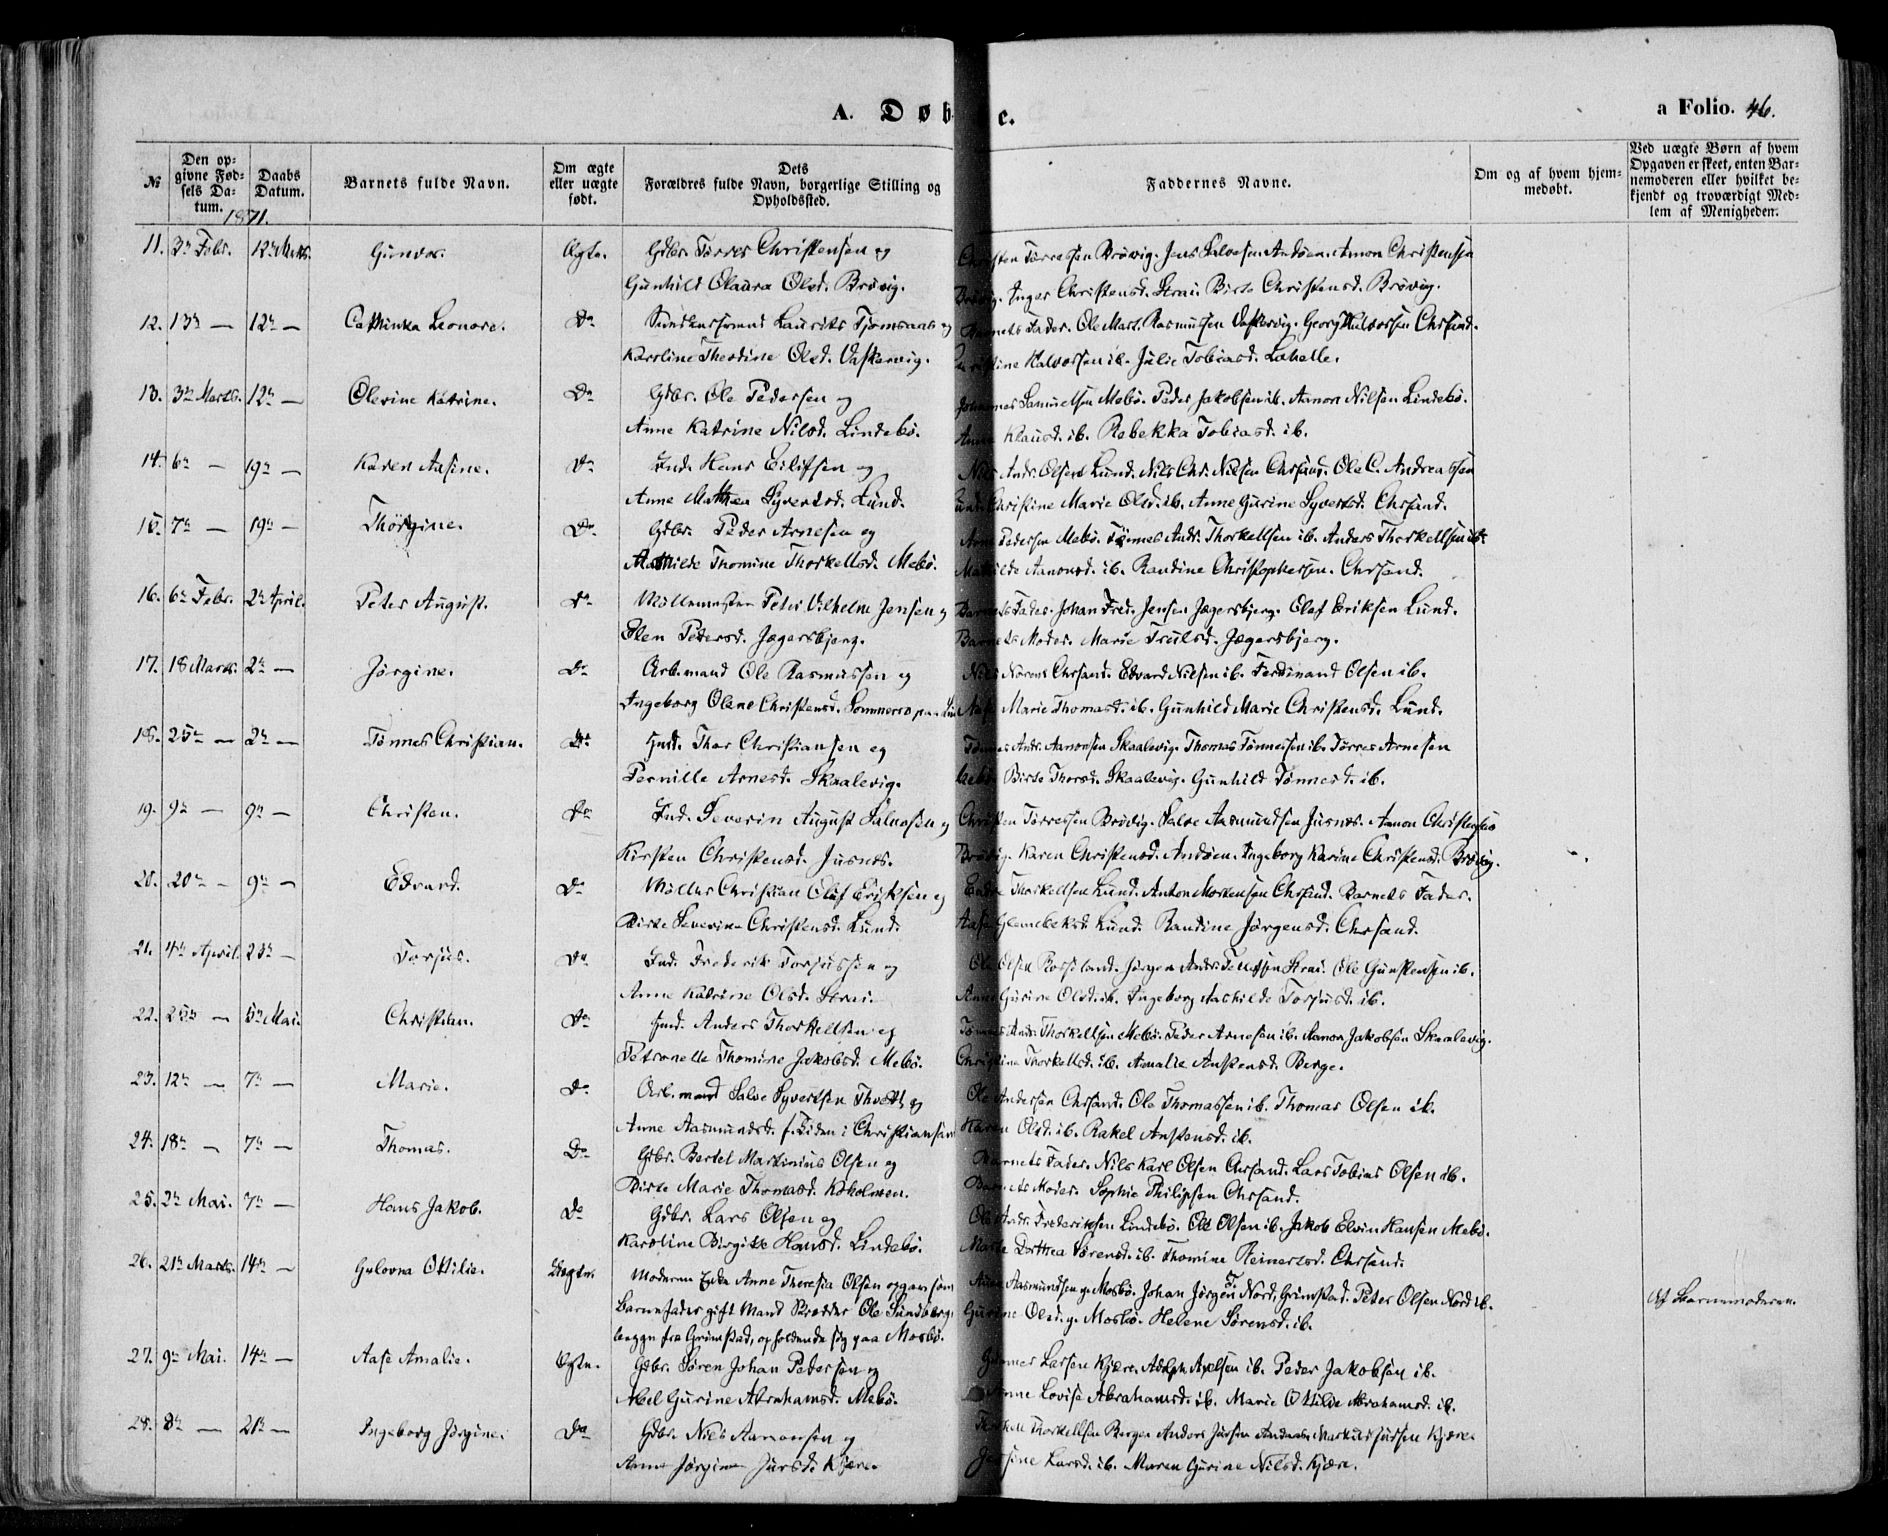 A. Døb
e.
a Folio. 46.
No
Den opgivne Fødsels Datum.
Daabs Datum.
Barnets fulde Navn.
Om ægte eller uægte født.
Dets Forældres fulde Navn, borgerlige Stilling og Opholdssted.
Faddernes Navne.
Om og af hvem hjemmedøbt.
Ved uægte Børn af hvem Opgaven er skeet, enten Barnemoderen eller hvilket bekjendt og troværdigt Medlem af Menigheden.
1871.
11. 3die Febr. 12te Marts. Gunvor. Ægte. Gdbr. Torres Christensen og Torressen Brøvig. Jens Salvesen Andøen. Aanon Christensen
Gunhild Olaura Olsd. Brøvig. Brøvig. Inger Christensd. Strai. Birte Christensd. Brøvig.
12. 13de — 12te — Cathinka Leonore. Do Laurits Tjomsaas og Barnets Fader. Ole Mart. Rasmussen Vaskervig. Georg Halvorsen Chrsand.
Karoline Theodine Olsd. Vaskervig. Halvorsen ib. Julie Tobiasd. Lahelle.
13. 3die Marts. 12te — Olevine Katrine. Do Gdbr. Ole Pedersen og Johannes Samuelsen Mebø. Peder Jakobsen ib. Aanon Nilsen Lindebø.
Anne Katrine Nilsd. Lindebø. Anne Klausd. ib. Rebekka Tobiasd. ib.
14. 6te — 19de — Karen Aasine. Do Ind. Hans Eilifsen og Nils Andr. Olsen Lund. Nils Chr. Nielsen Chrsand. Ole C. Andreassen
Anne Mathea Syvertsd. Lund. Lund. Christine Marie Olsd. ib. Anne Gurine Syvertsd. Chrsand.
15. 7de — 19de — Thorgine. Do Gdbr. Peder Arnesen og Arne Pedersen Mebø. Tønnes Andr. Thorkellsen ib. Anders Thorkellsen ib.
Mathilde Thomine Thorkellsd. Mebø. Mathilde Aanonsd. ib. Randine Christophersen. Chrsand.
16. 6te Febr. 2den April. Peter August. Do Møllemester Peter Vilhelm Jensen og Barnets Fader. Johan Fred. Jensen Jægersbjerg. Olaf Eriksen Lund.
Elen Pedersd. Jægersbjerg. Barnets Moder. Marie Trulsd. Jægersbjerg.
17. 18 Marts. 2den — Jørgine. Do Arb.mand Ole Rasmussen og Nils Chrsand. Edvard Nilsen ib. Ferdinand Olsen ib.
Ingeborg Olene Christensd. Marie Thomasd. ib. Gunhild Marie Christensd. Lund.
18. 25de — 2den — Tønnes Christian. Do Ind. Thor Christiansen og Tønnes Andr. Aanonsen Skaalevig. Thomas Tønnessen ib. Torres Arnesen
Pernille Arnesd. Skaalevig. Mebø. Birte Thorsd. Skaalevig. Gunhild Tønnesd. ib.
19. 9de — 9de — Christen. Do Ind. Severin August Salvesen og Christen Torressen Brøvig. Salve Aasmundsen Jusnes. Aanon Christensen
Kirsten Christensd. Jusnes. Brøvig. Karen Christensd. Andøen. Ingeborg Karine Christensd. Brøvig.
20. 20de — 9de — Edvard. Do Møller Christian Olaf Eriksen og Thorkellsen Lund. Anton Mortensen Chrsand. Barnets Fader.
Birte Severine Christensd. Lund. Lund. Randine Jørgensd. Chrsand.
21. 4de April. 23de — Torjus. Do Ind. Frederik Torjussen og Ole Olsen Rosseland. Jørgen Andr. Strai. Ole Gunstensen ib.
Anne Katrine Olsd. Strai. Anne Gurine Olsd. ib. Ingeborg Aashilde Torjusd. ib.
22. 25de — 5te Mai. Christian. Do Ind. Anders Thorkellsen og Tønnes Andr. Thorkellsen Mebø. Peder Arnesen ib. Aanon Jakobsen Skaalevig.
Petronelle Thomine Jakobsd. Mebø. Christine Thorkellsd. ib. Amalie Anstensd. Berge.
23. 12te — 7de — Marie. Do Arb.mand Salve Syvertsen og Ole Andersen Chrsand. Ole Thomassen ib. Thomas Olsen ib.
Anne Aasmundsd. f. Tiden i Christiansand Karen Olsd. ib. Rakel Anstensd. ib.
24. 18de — 7de — Thomas. Do Gdbr. Bertel Martinius Olsen og Barnets Fader. Nils Karl Olsen Chrsand. Lars Tobias Olsen ib.
Birte Marie Thomasd. Kokolmen. Barnets Moder. Sophie Philipsen Chrsand.
25. 2den Mai. 7de — Hans Jakob. Do Gdbr. Lars Olsen og Ole Andr. Frederiksen Lindebø. Ole Olsen ib. Jakob Elvin Hansen Mebø.
Karoline Birgitte Hansd. Lindebø. Dorthea Sørensd. ib. Thomine Reinertsd. Chrsand.
26. 21de Marts. 14de — Gulovna Ottilie. Uægte. Moderen Enke Anne Theresia Olsen opgav som Aasmundsen y. Mosbø. Johan Jørgen T. Nord, Grimstad. Peter Olsen Nord ib. Af Barnemoderen.
Barnefader gift Mand Skrædder Ole Sundberg, Gurine Olsd. y. Mosbø. Helene Sørensd. ib.
begge fra Grimstad, opholdende sig paa Mosbø.
27. 9de Mai. 14de — Aase Amalie. Ægte. Gdbr. Søren Johan Pedersen og Gunner Larsen Kjære. Adolph Axelsen ib. Peder Jakobsen ib.
Abel Gurine Abrahamsd. Mebø. Anne Lovise Abrahamsd. ib. Marie Otilde Abrahamsd. ib.
28. 8de — 21de — Ingeborg Jørgine. Do Gdbr. Nils Aanonsen og Thorkellsen Berge. Anders Jursen Andreas Markus Jursen Kjære.
Anne Jørgine Jursd. Kjære. Larsd. ib. Maren Gurine Nilsd. Kjære.